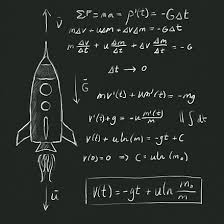 v⃗
ΣF = ma = p'(t) = -GΔt
mΔv + uΔm = -GΔt
m Δv/Δt + u Δm/Δt = -G
Δt → 0
G⃗
mv'(t) + um'(t) = -mg
v'(t) = -g - u m'(t)/m
v(t) + u ln(m) = -gt + C
v(0) = 0 => C = u ln(m₀)
v(t) = -gt + u ln m₀/m
u⃗